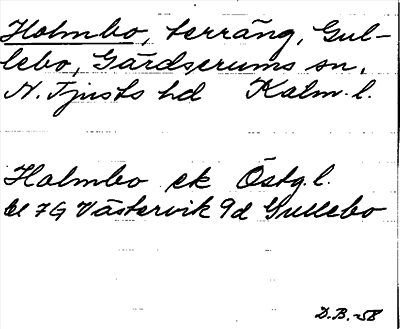 Holmbo, terräng, Gul-
lebo, Gärdserums sn,
N. Tjusts hd Kalm. l.
Holmbo ek Östg. l.
bl 7G Västervik 9d Gullebo
D.B. -58